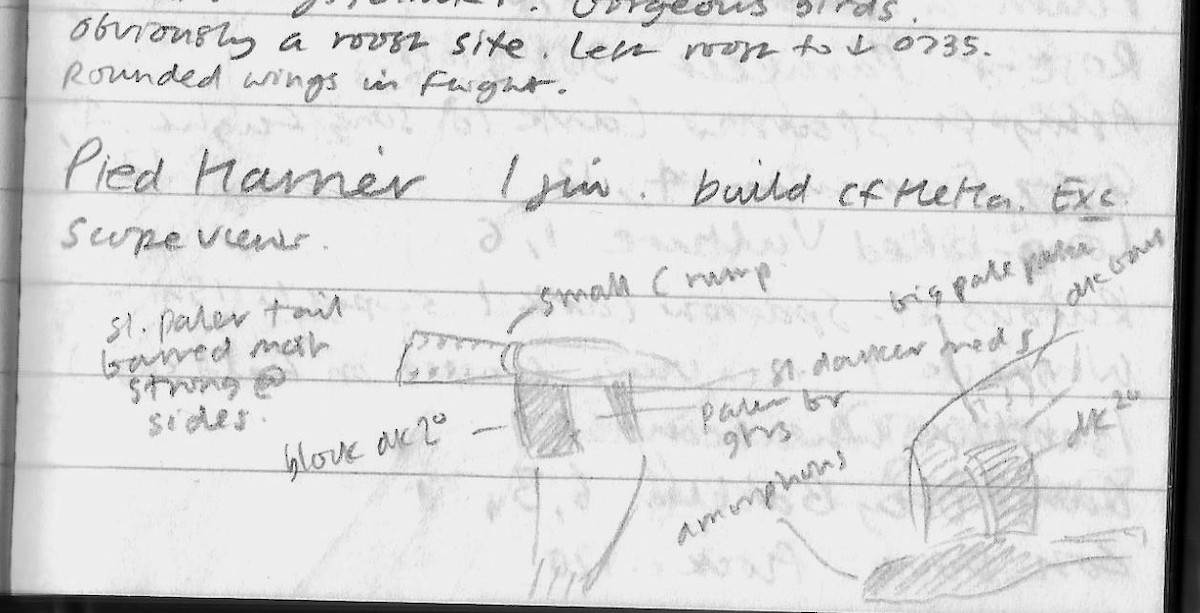 Gorgeous birds.
Obviously a roost site. Left roost to ↓ 0735.
Rounded wings in flight.
Pied Harrier 1 juv. build cf HeHa. Exc
scope views.
small C rump
big pale patch
dk bars
sl. paler tail
barred most
strong @
sides.
sl. darker meds
paler br
gtrs
block dk 2°
dk 2°
amorphous